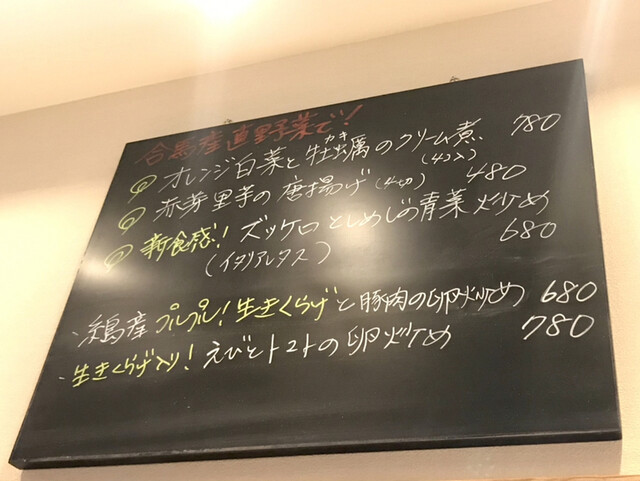 合馬産直野菜で!
オレンジ白菜と牡蠣のクリーム煮 780
カキ
(4コ入)
赤芽里芋の唐揚げ(4切) 480
新食感!ズッケロとしめじの青菜炒め
(イタリアレタス) 680
・糸島産プルプル!生きくらげと豚肉の卵炒め 680
・生きくらげ入り!えびとトマトの卵炒め 780